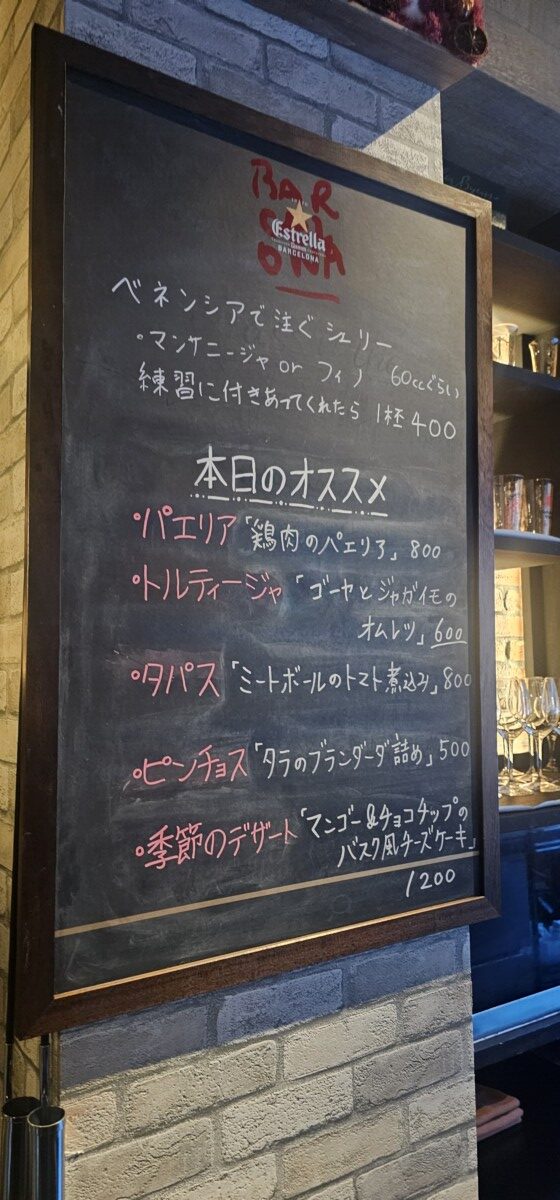 BAR
ONA
Estrella
BARCELONA
ベネンシアで注ぐシェリー
・マンサニージャ or フィノ 60ccぐらい
練習に付きあってくれたら 1杯 400
本日のオススメ
・パエリア「鶏肉のパエリア」 800
・トルティージャ「ゴーヤとジャガイモの
オムレツ」 600
・タパス「ミートボールのトマト煮込み」 800
・ピンチョス「タラのブランダーダ詰め」 500
・季節のデザート「マンゴー&チョコチップの
バスク風チーズケーキ」
1200